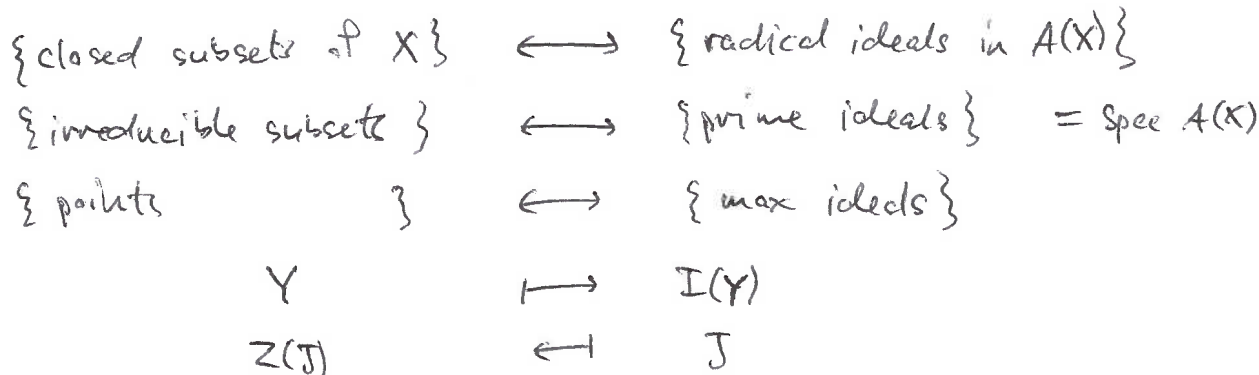 {closed subsets of X} ⟷ {radical ideals in A(X)}
{irreducible subsets} ⟷ {prime ideals} = Spec A(X)
{points} ⟷ {max ideals}
Y ⟼ I(Y)
Z(J) ⟻ J